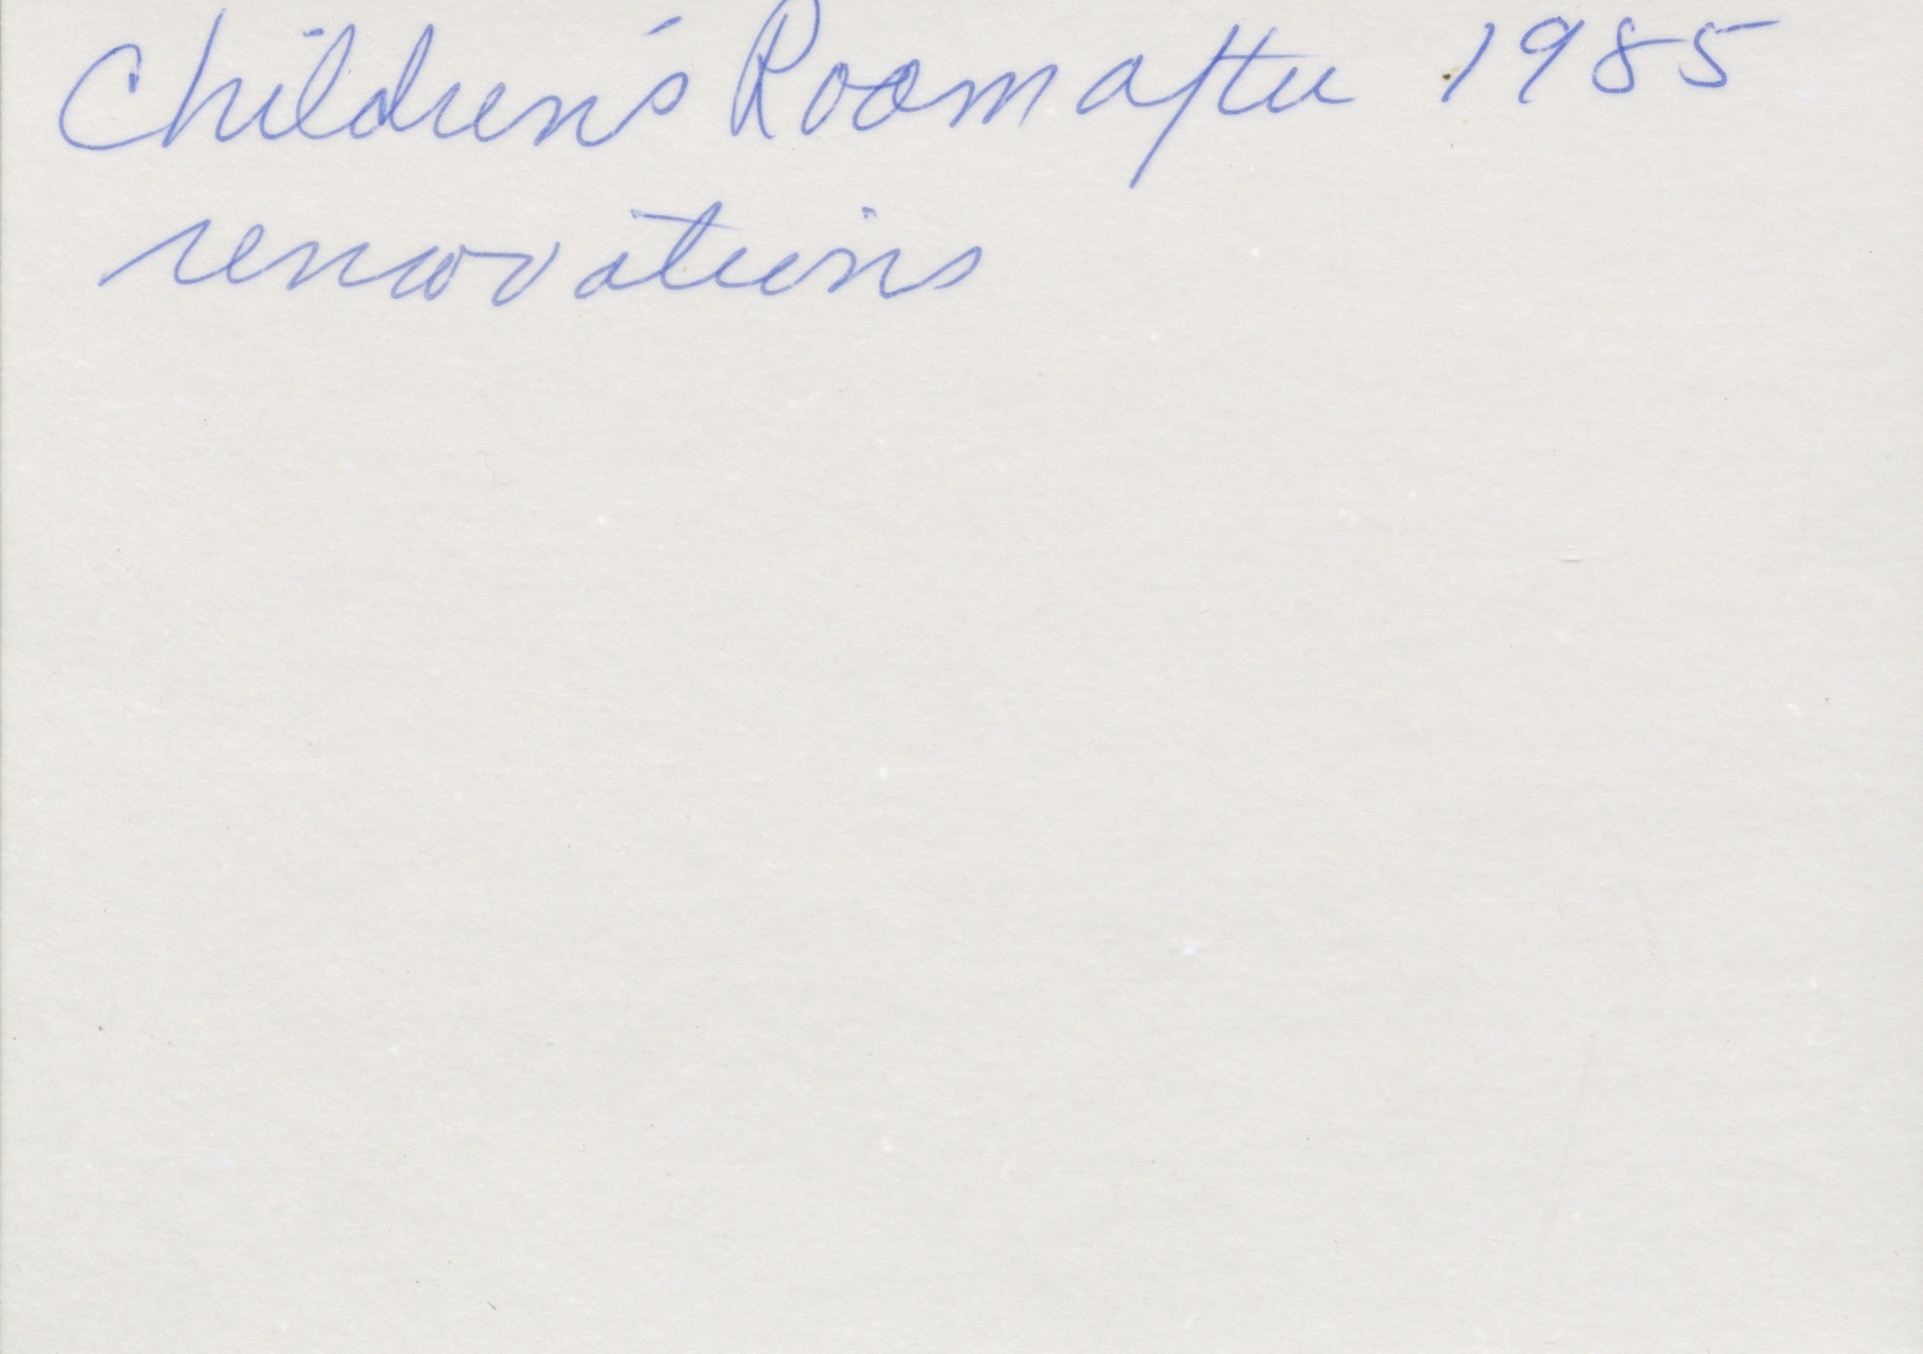 Children's Room after 1985
renovations